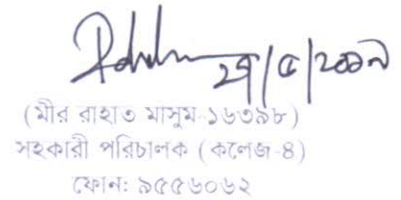 ২৭/৫/২০১৯
(মীর রাহাত মাসুম-১৬৩৯৮)
সহকারী পরিচালক (কলেজ-৪)
ফোন: ৯৫৫৬০৬২